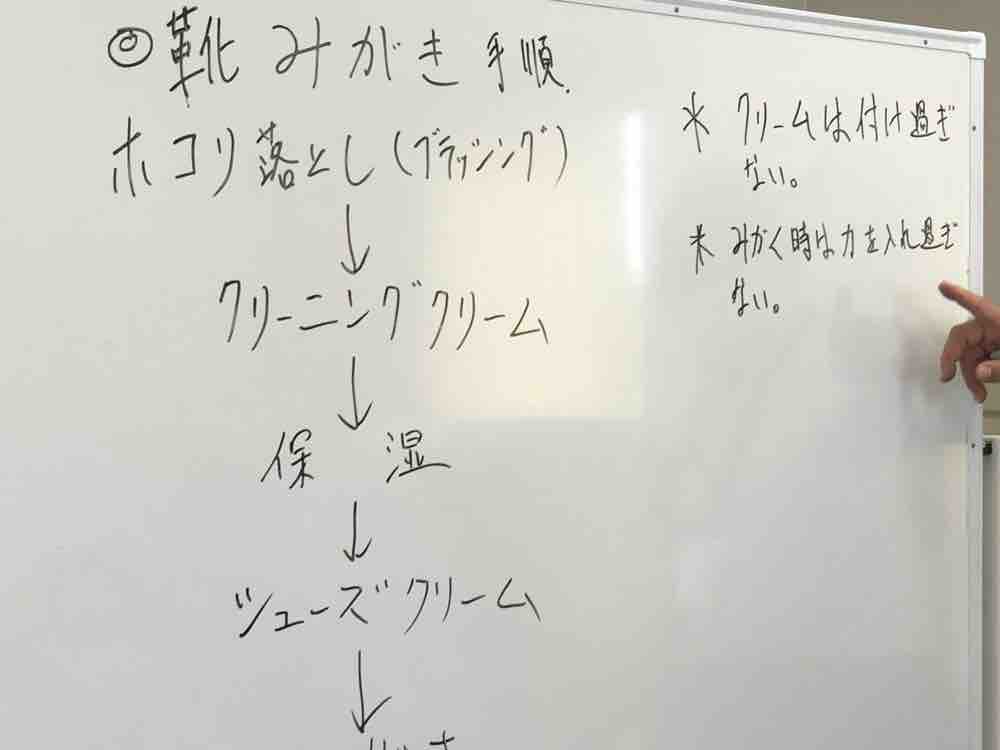 ◎靴みがき手順.
ホコリ落とし(ブラッシング)
↓
クリーニングクリーム
↓
保湿
↓
シューズクリーム
↓
* クリームは付け過ぎ
ない。
* みがく時は力を入れ過ぎ
ない。